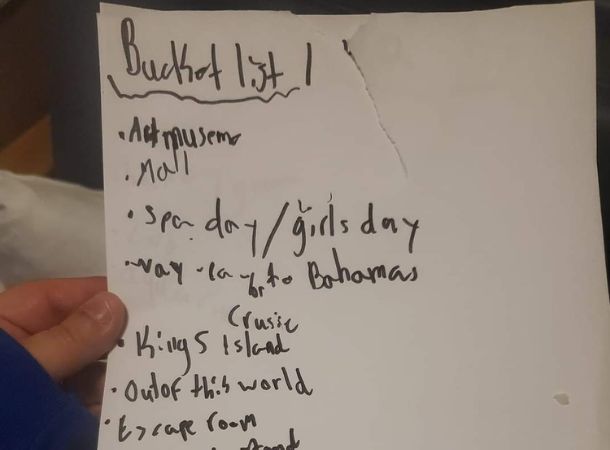 Bucket list 1
• Art museum
• Mall
• Spa day / girls day
to Bahamas
or
Crusie
• Kings Island
• Out of this world
• Escape room